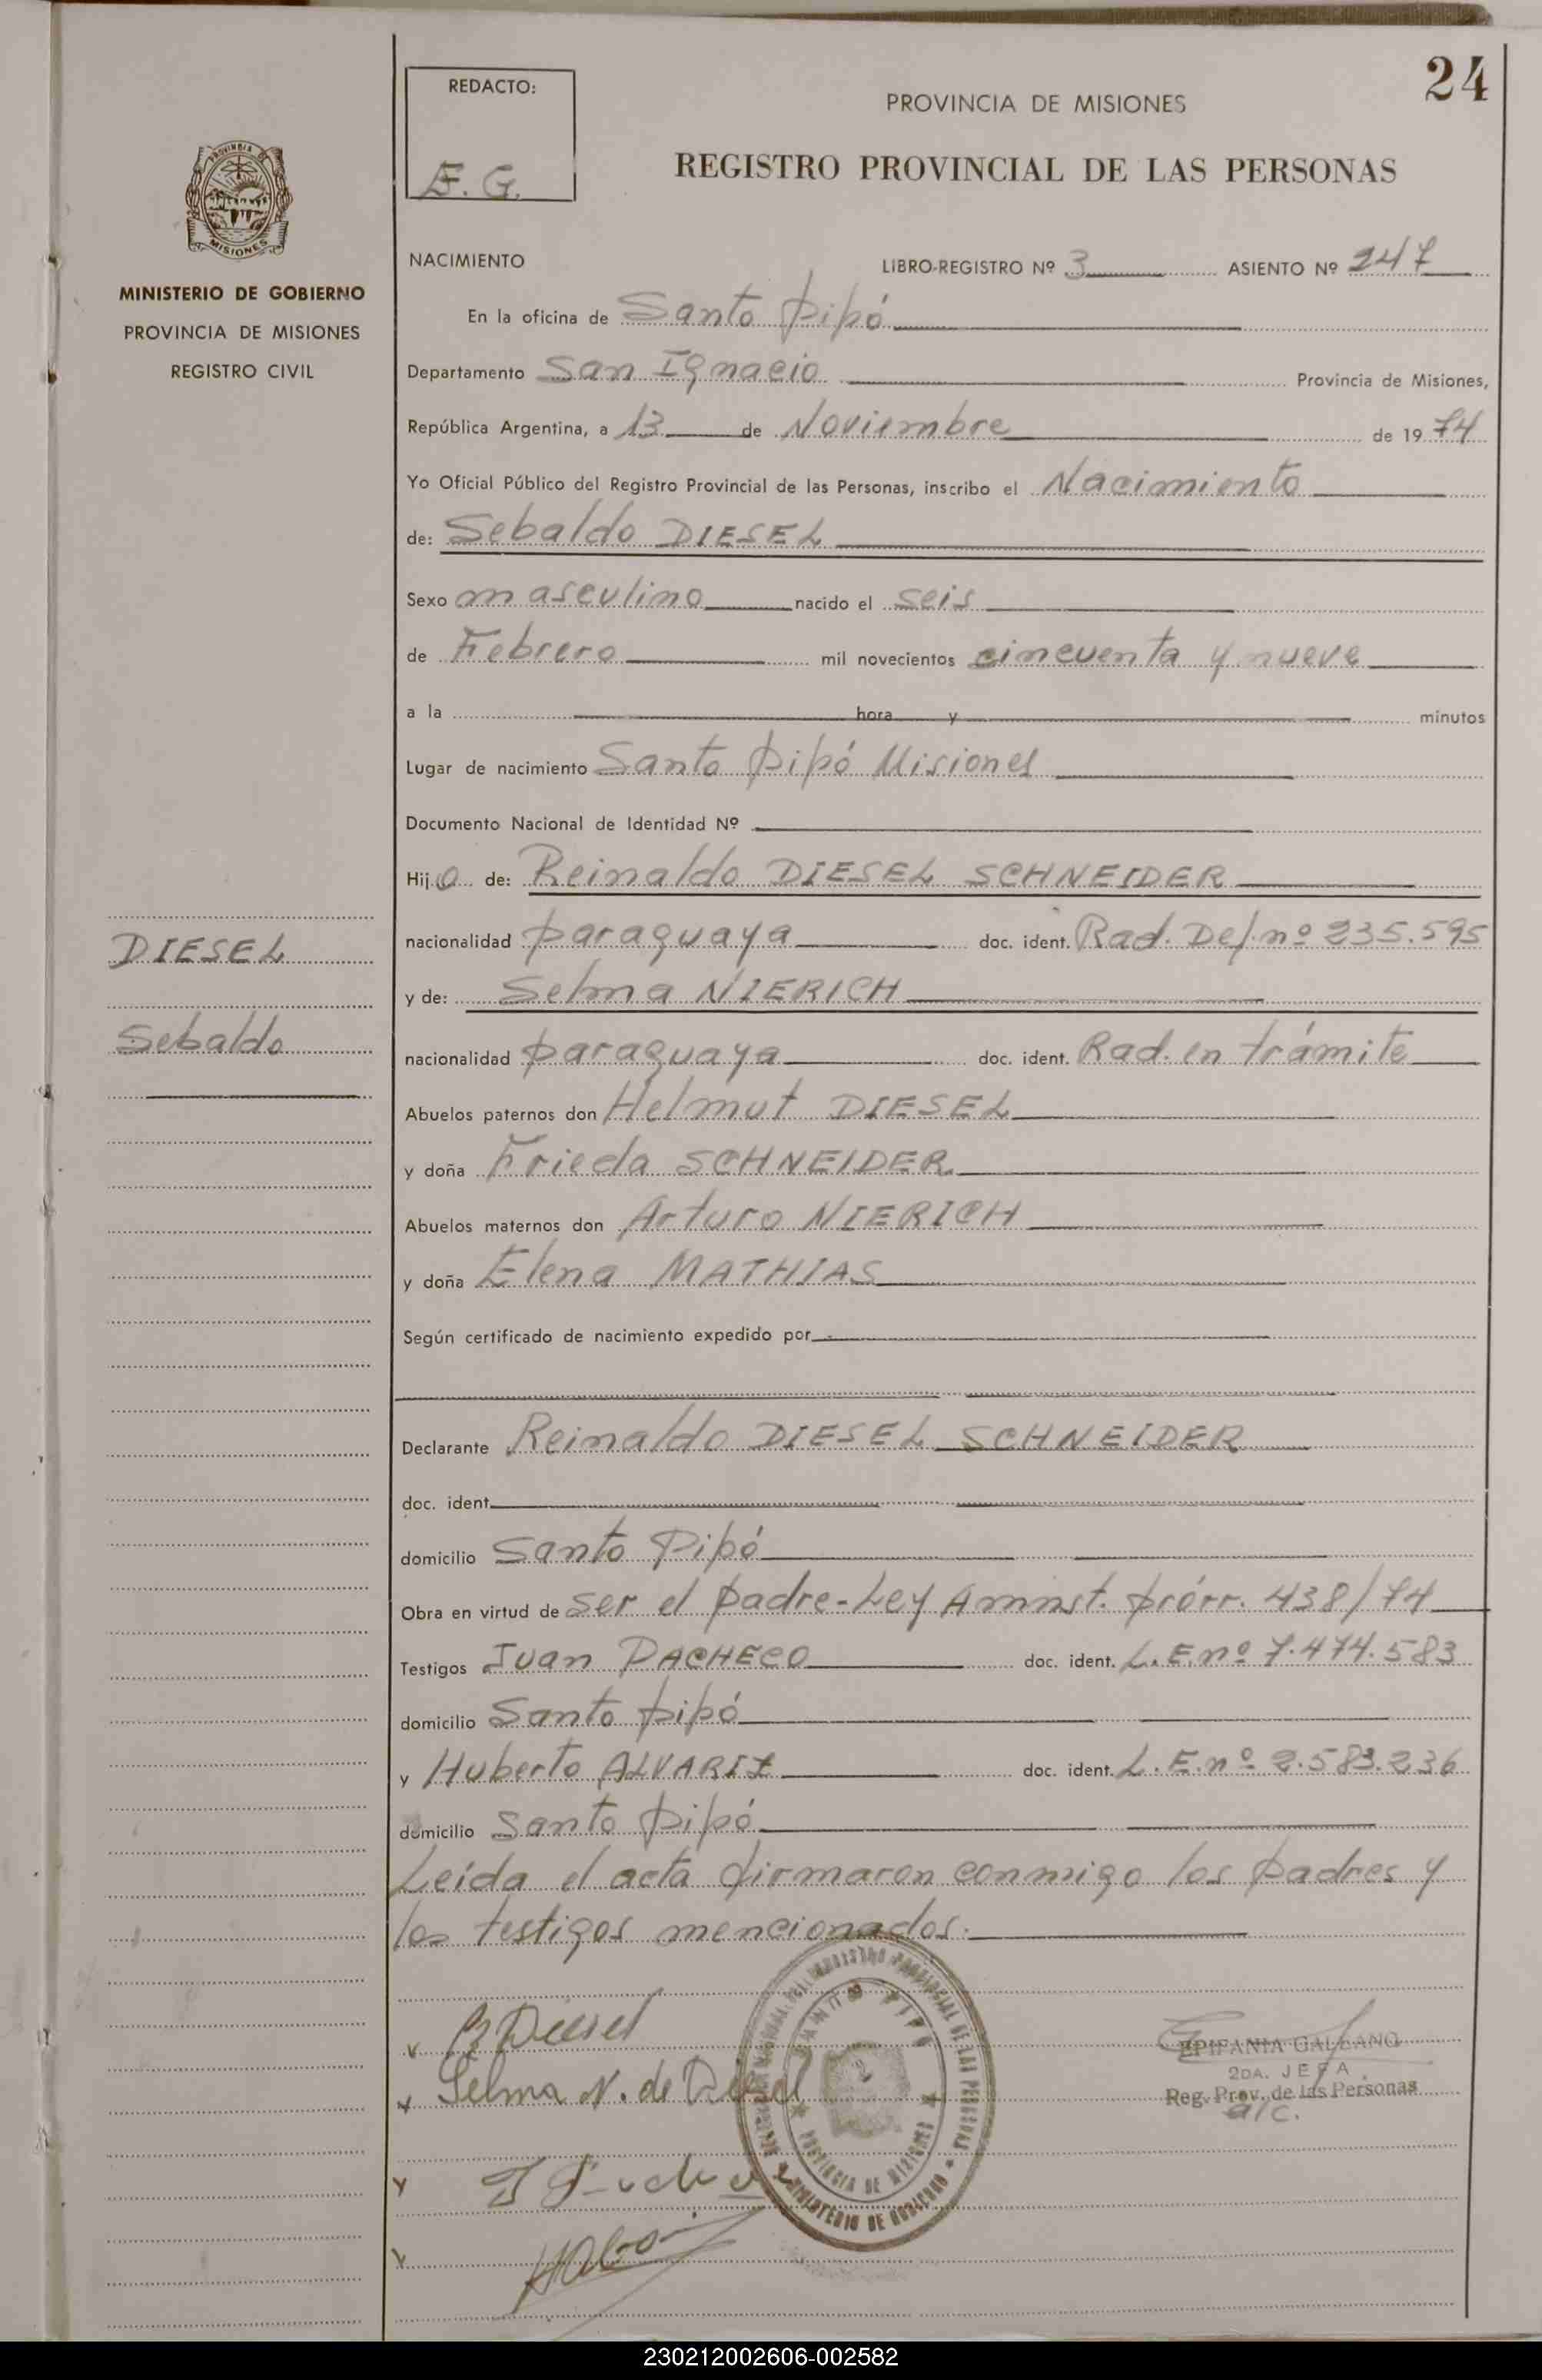 24
REDACTO:
E. G.
PROVINCIA DE MISIONES
REGISTRO PROVINCIAL DE LAS PERSONAS
PROVINCIA DE
MISIONES
MINISTERIO DE GOBIERNO
PROVINCIA DE MISIONES
REGISTRO CIVIL
NACIMIENTO LIBRO-REGISTRO Nº 3 ASIENTO Nº 247
En la oficina de Santo Pipó
Departamento San Ignacio Provincia de Misiones,
República Argentina, a 13 de Noviembre de 1974
Yo Oficial Público del Registro Provincial de las Personas, inscribo el Nacimiento
de: Sebaldo DIESEL
Sexo masculino nacido el seis
de Febrero mil novecientos cincuenta y nueve
a la hora y minutos
Lugar de nacimiento Santo Pipó Misiones
Documento Nacional de Identidad Nº
Hijo de: Reinaldo DIESEL SCHNEIDER
nacionalidad paraguaya doc. ident. Rad. Def. nº 235.595
y de: Selma NIERICH
nacionalidad paraguaya doc. ident. Rad. en trámite
Abuelos paternos don Helmut DIESEL
y doña Frieda SCHNEIDER
Abuelos maternos don Arturo NIERICH
y doña Elena MATHIAS
Según certificado de nacimiento expedido por
Declarante Reinaldo DIESEL SCHNEIDER
doc. ident.
domicilio Santo Pipó
Obra en virtud de ser el padre - Ley Amnist. prórr. 438/74
Testigos Juan PACHECO doc. ident. L.E. nº 7.474.583
domicilio Santo Pipó
y Huberto ALVAREZ doc. ident. L.E. nº 2.583.236
domicilio Santo Pipó
Leída el acta firmaron conmigo los padres y
los testigos mencionados.
DIESEL
Sebaldo
R Diesel
Selma N. de Diesel
SANTO PIPÓ
PROVINCIA DE MISIONES
MINISTERIO DE GOBIERNO
EPIFANIA GALEANO
2DA. JEFA
Reg. Prov. de las Personas
a/c.
230212002606-002582